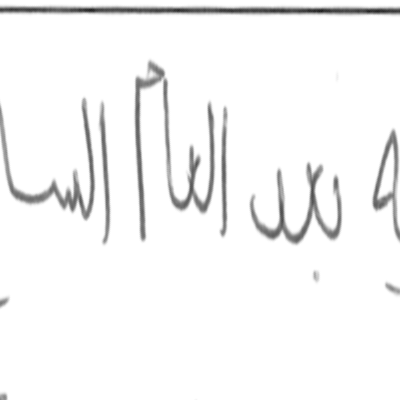 بعد العام السا